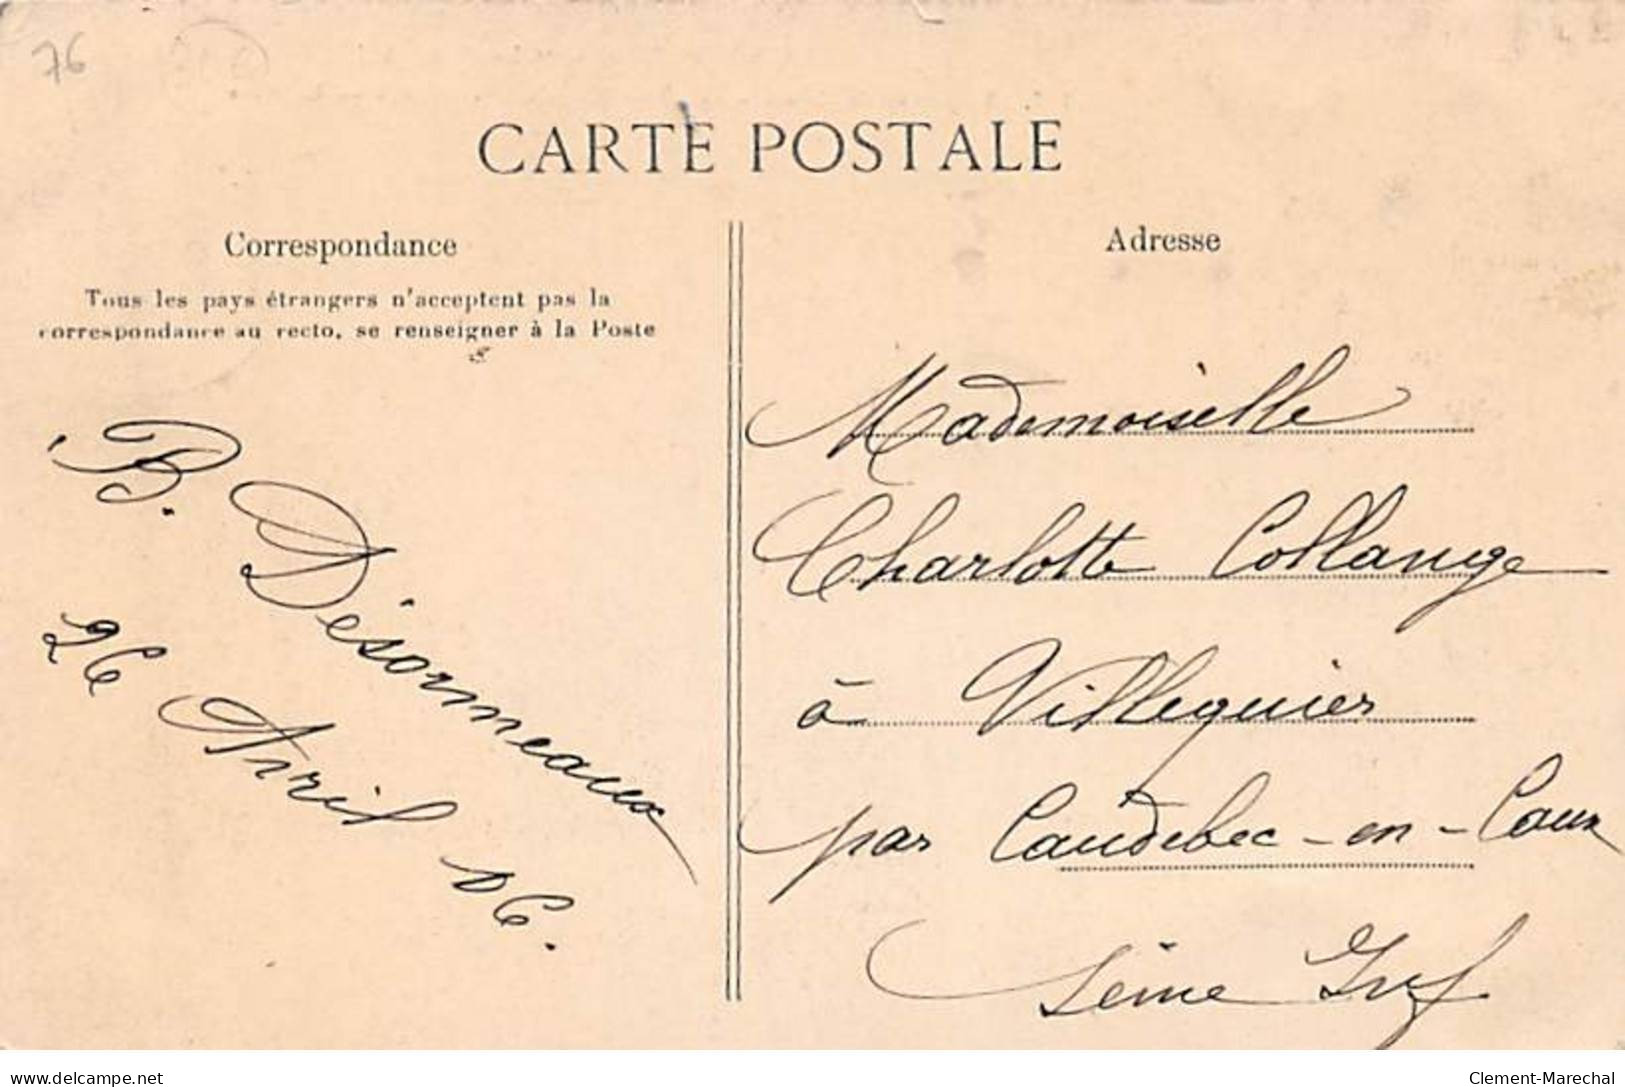 76
CARTE POSTALE
Correspondance
Tous les pays étrangers n'acceptent pas la
correspondance au recto, se renseigner à la Poste
B. Désormeaux
26 Avril 06.
Adresse
Mademoiselle
Charlotte Collange
à Villequier
par Caudebec-en-Caux
Seine Inf
delcampe.net
Clement-Marechal